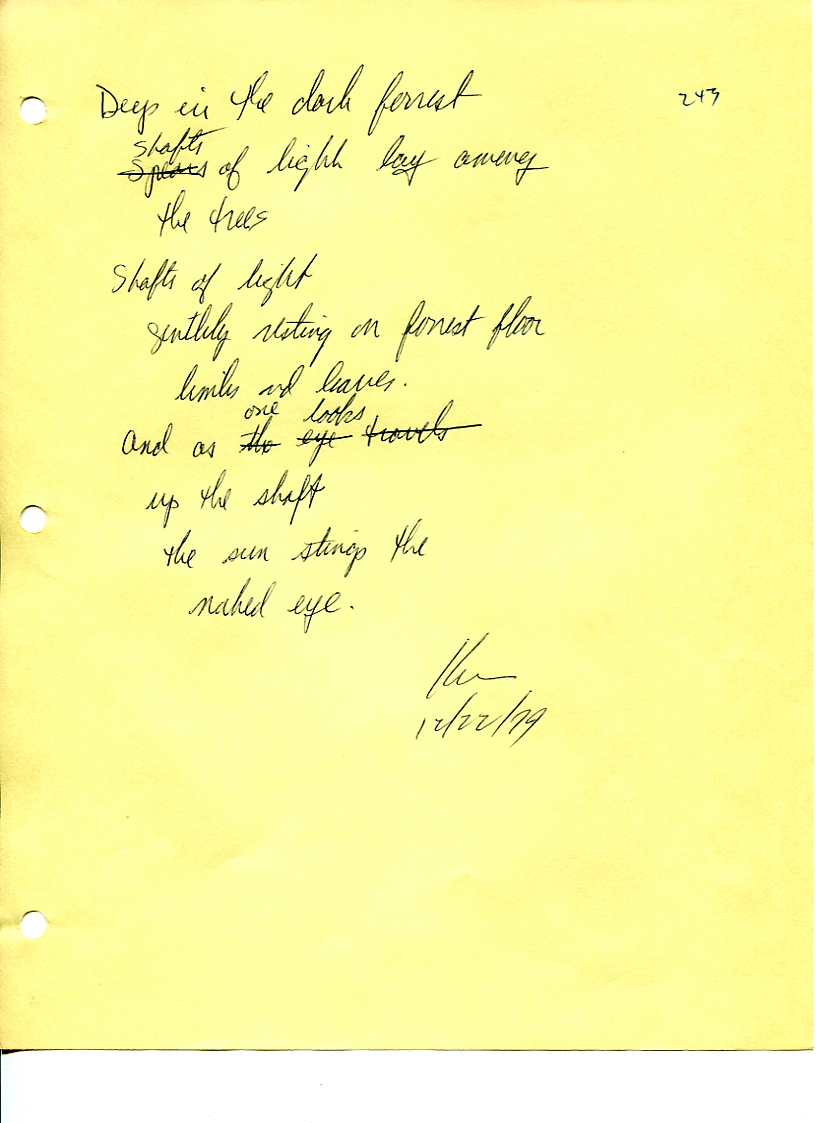 243
Deep in the dark forrest
Shafts
Spears of light lay among
the trees
Shafts of light
gently resting on forrest floor
limbs nd leaves.
one looks
And as the eye travels
up the shaft
the sun stings the
naked eye.
12/22/79